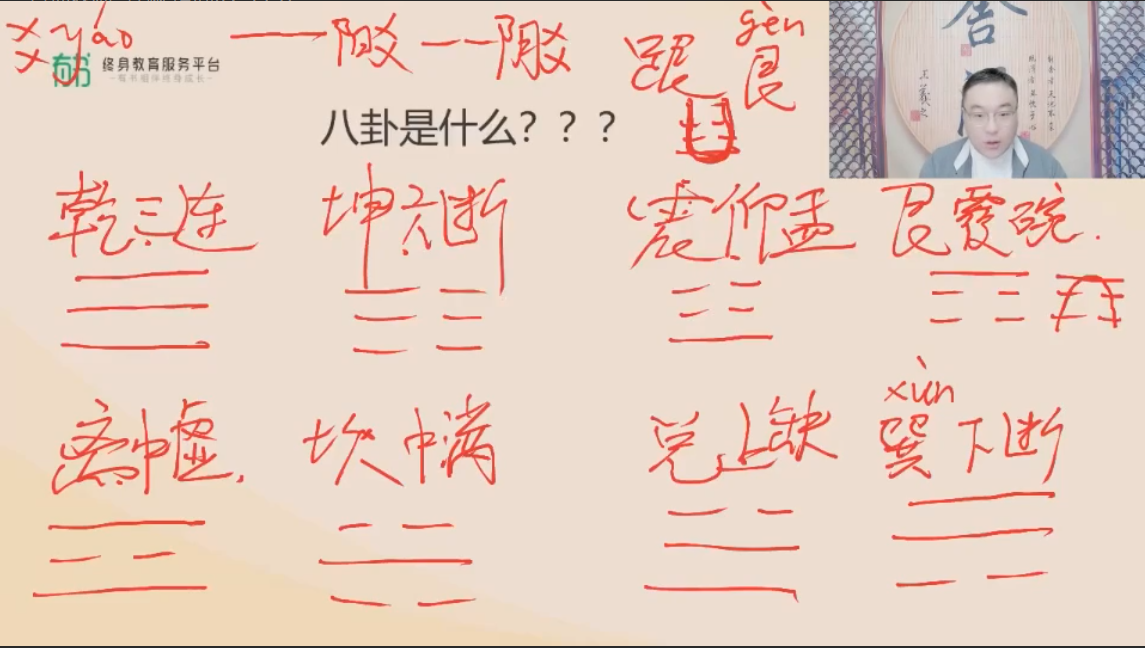 爻 yáo 一阳爻 -- 阴爻 跟 gèn 艮
有书 终身教育服务平台
—有书相伴终身成长—
八卦是什么？？？
乾三连 坤六断 震仰盂 艮覆碗.
离中虚. 坎中满 兑上缺 xùn 巽下断
王羲之